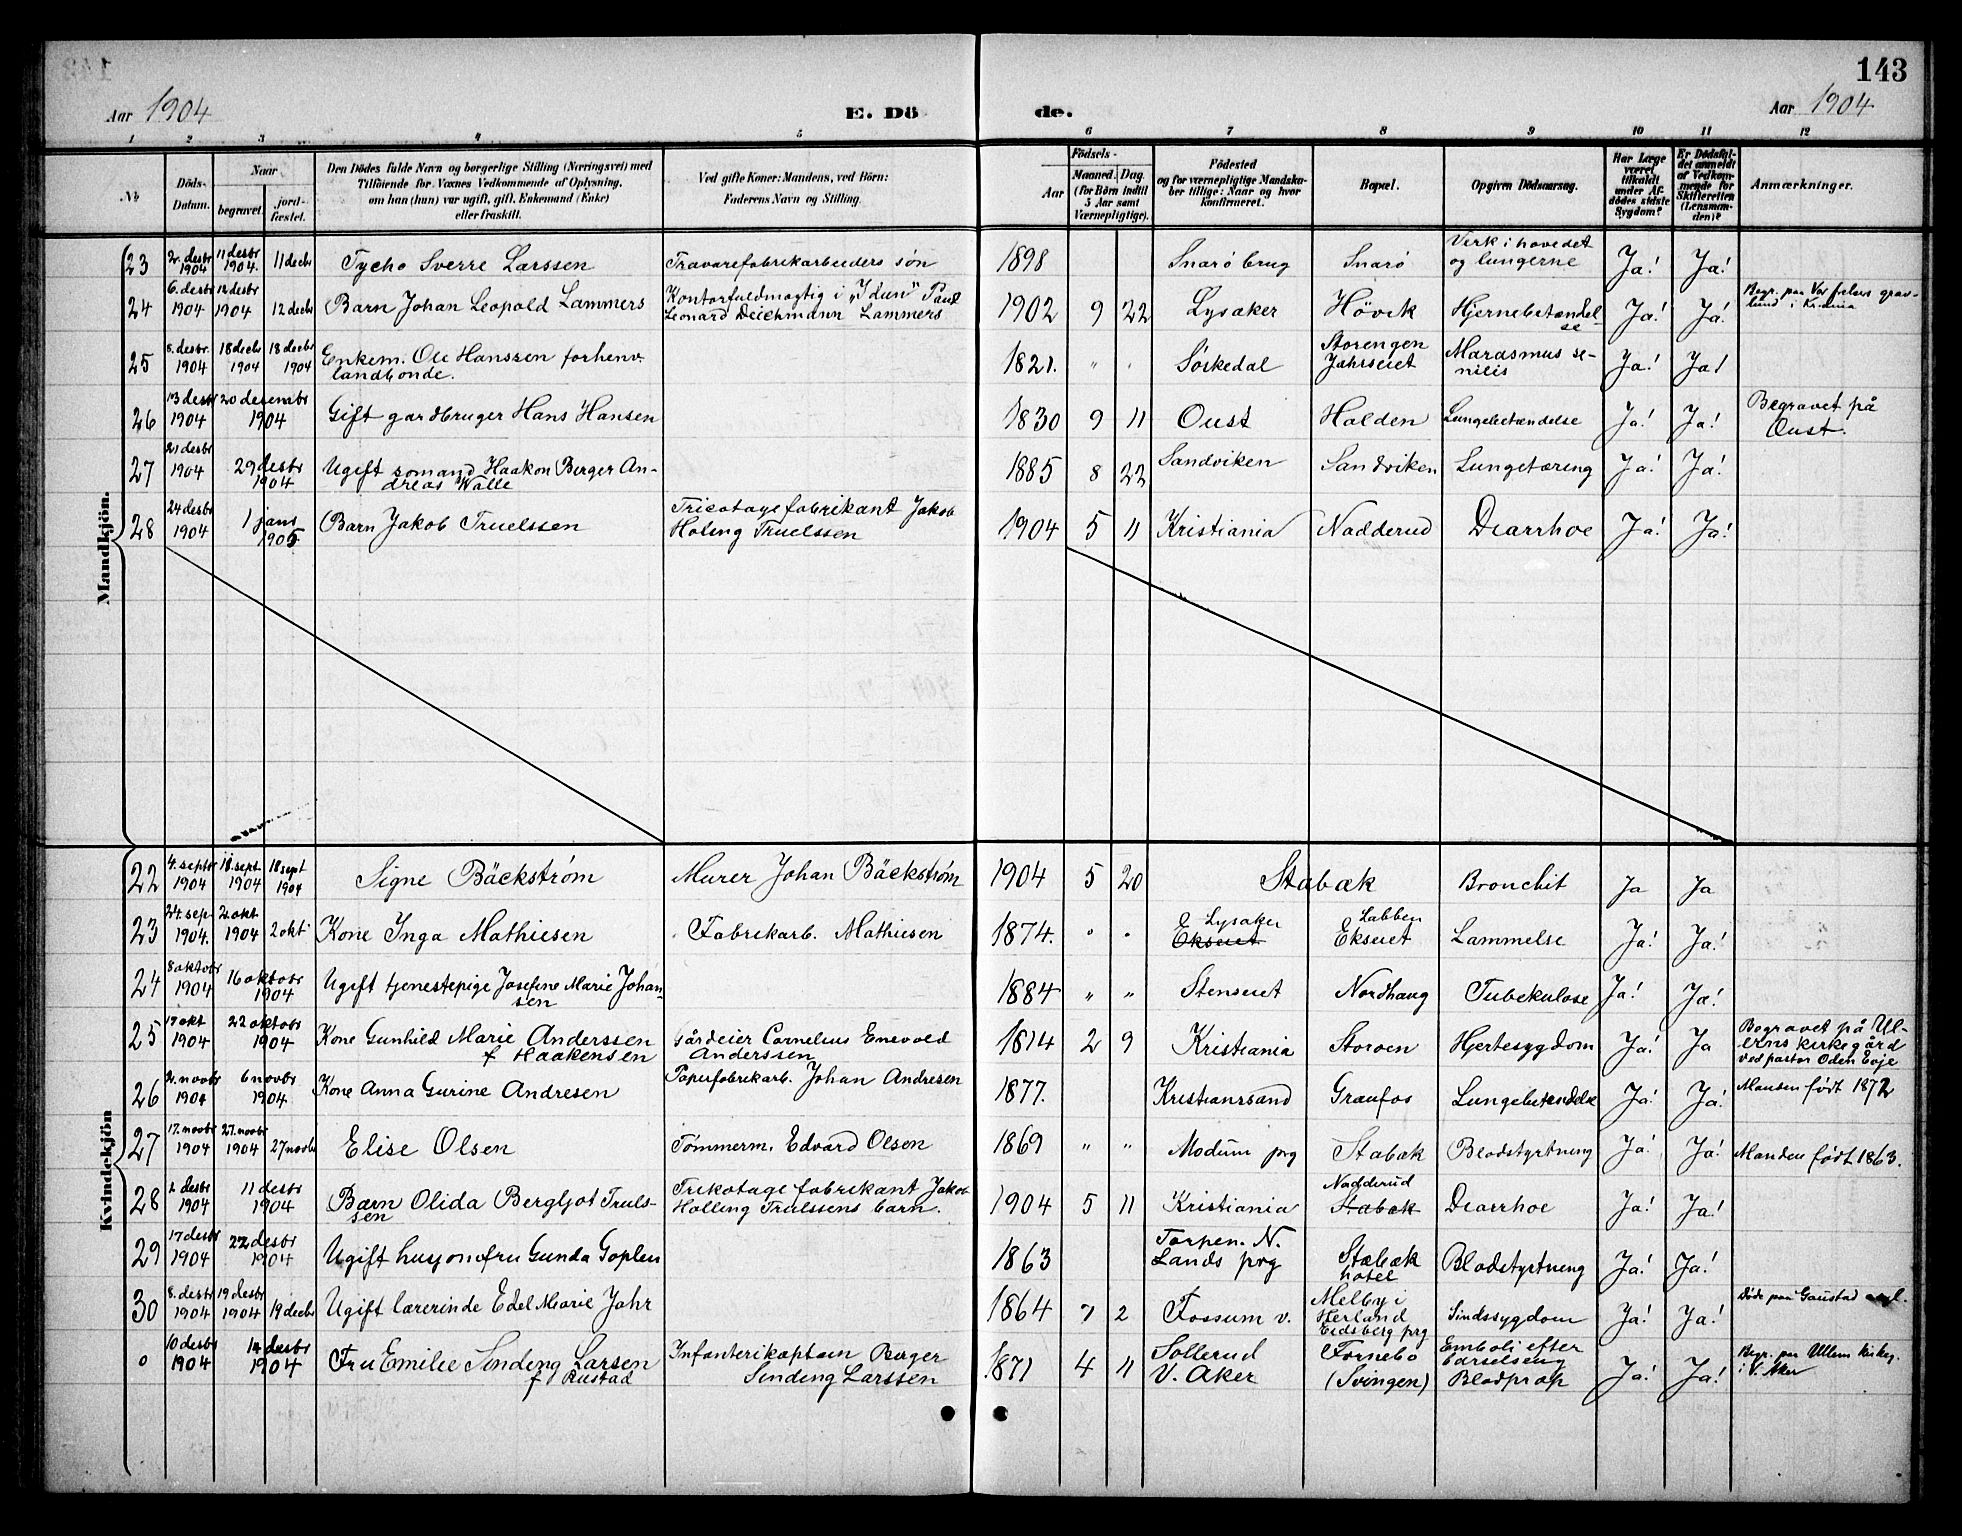 143
Aar 1904
E. Dö
de.
Aar 1904
1 2 3 4 5 6 7 8 9 10 11 12
№
Döds-Datum.
Naar
begravet.
jord-fæstet.
Den Dödes fulde Navn og borgerlige Stilling (Næringsvei) med
Tilföiende for Voxnes Vedkommende af Oplysning,
om han (hun) var ugift, gift, Enkemand (Enke)
eller fraskilt.
Ved gifte Koner: Mandens, ved Börn:
Faderens Navn og Stilling.
Födsels-
Aar
Maaned. Dag.
(for Börn indtil
5 Aar samt
Værnepligtige).
Födested
og for værnepligtige Mandska-
ber tillige: Naar og hvor
konfirmeret.
Bopæl.
Opgiven Dödsaarsag.
Har Læge
været
tilkaldt
under Af-
dødes sidste
Sygdom?
Er Dödsfal-
det anmeldt
af Vedkom-
mende for
Skifteretten
(Lensman-
den)?
Anmærkninger.
Mandkjön.
23 2. desbr 1904 11 desbr 1904. 11 decbr Tycho Sverre Larssen Travarefabrikarbeiders søn 1898 Snarö brug Snarö Verk i hovedet og lungerne Ja! Ja!
24 6. desbr 1904 12 desbr 1904 12 decbr Barn Johan Leopold Lammers Kontorfuldmægtig i "Idun" Paul Leonard Deichmann Lammers 1902 9 22 Lysaker Hövik Hjernebetændelse Ja! Ja! Begr. paa Vor frelsers gravlund i Kristiania
25 8. desbr. 1904 18 decbr 1904 18 decbr 1904 Enkem. Ole Hanssen forhenv. landbonde. 1821. " " Sörkedal Storengen Jahrseiet Marasmus senilis Ja! Ja!
26 13 desbr 1904 20 desember 1904 Gift gardbruger Hans Hansen 1830 9 11 Oust Holden Lungebetændelse Ja! Ja! Begravet på Oust.
27 21 desbr 1904 29 desbr 1904 Ugift sømand Haakon Berger Andreas Walle 1885 8 22 Sandviken Sandviken Lungetæring Ja! Ja!
28 24 desbr 1904 1 jan 1905 Barn Jakob Truelssen Tricotagefabrikant Jakob Holing Truelssen 1904 5 11 Kristiania Nadderud Diarrhoe Ja! Ja!
Kvindekjön
22 4. septbr 1904 18. sept 1904 18 sept 1904 Signe Bäckström Murer Johan Bäckstrøm 1904 5 20 Stabæk Bronchit Ja Ja
23 24. sep. 1904. 2. okt 1904 2 okt Kone Inga Mathiesen Fabrikarb. Mathiesen 1874. " " Lysaker Ekseiet Labben Ekseiet Lammelse Ja! Ja!
24 8 oktobr 1904 16 oktobr 1904 Ugift tjenestepige Josefine Marie Johansen 1884 " " Stenseiet Nordhaug Tubekulose Ja! Ja!
25 17 okt 1904 22 oktobr 1904 Kone Gunhild Marie Anderssen f Haakensen Gårdeier Cornelius Enevold Anderssen 1814 2 9 Kristiania Storoen Hjertesygdom Ja! Ja Begravet på Ullerns kirkegård ved pastor Oden Evje
26 2. novbr 1904 6 novbr 1904. Kone Anna Gurine Andresen Papirfabrikarb. Johan Andresen 1877. Kristianssand Granfos Lungebetændelse Ja! Ja! Manden født 1872
27 17. novbr 1904 27. novbr 1904 27 novbr Elise Olsen Tømmerm. Edvard Olsen 1869 " " Modum prg Stabæk Blodstyrtning Ja! Ja! Manden født 1863.
28 2 desbr 1904 11 desbr 1904 Barn Olida Bergljot Trulssen Trikotagefabrikant Jakob Holling Trulssens barn. 1904 5 11 Kristiania Nadderud Stabæk Diarrhoe Ja! Ja!
29 17 desbr 1904 22 desbr 1904 Ugift husjomfru Gunda Goplen 1863 Torpen. N. Lands prg Stabæk hotel Blodstyrtning Ja! Ja!
30 8. desbr 1904 19 desbr 1904 19 decbr Ugift lærerinde Edel Marie Jahr 1864 7 2 Fossum v. Melby i Herland Eidsberg prg Sindssygdom Ja! Ja! Döde paa Gaustad asyl.
0 10 desbr 1904 14 desbr 1904 Fru Emilie Sinding Larsen f Rustad Infanterikaptein Birger Sinding Larssen 1871 4 11 Sollerud V. Aker Fornebo (Svingen) Emboli efter barselseng Blodprop Ja! Ja! Begr. paa Ullern kirkeg. i V. Aker